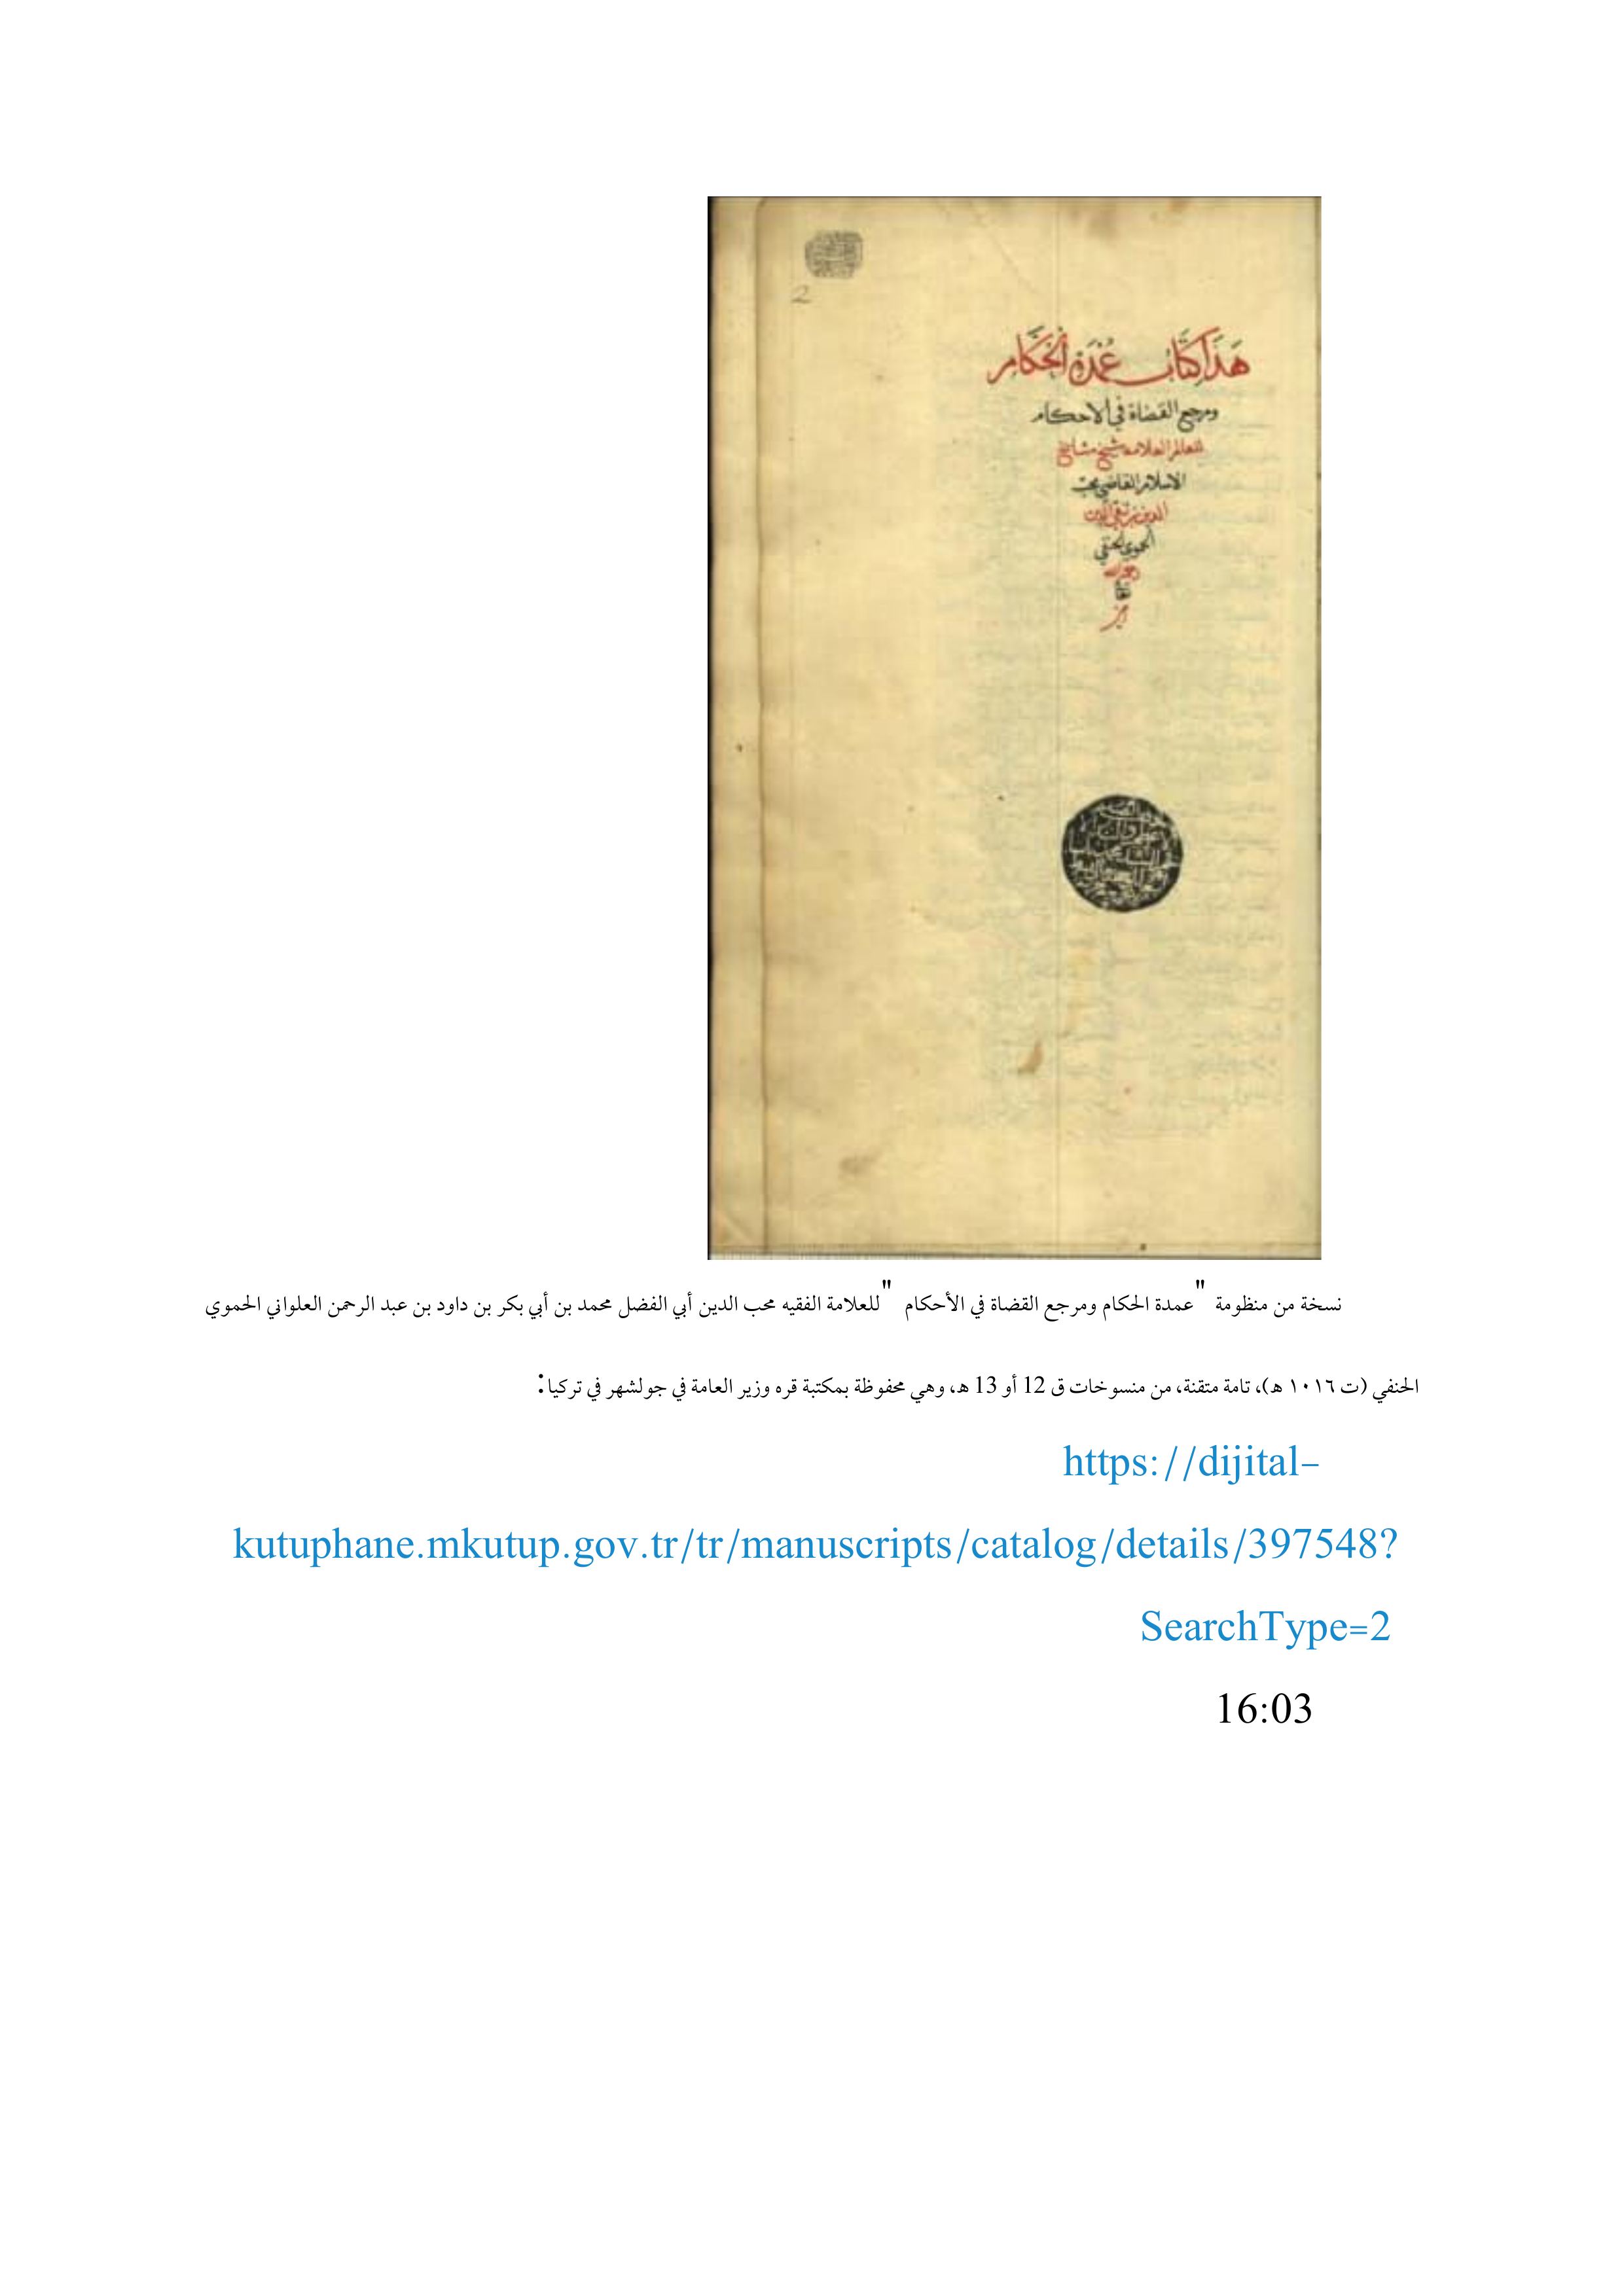 2
هَذَا كِتَاب عُمْدَة الحُكَّام
ومرجع القضاة في الاحكام
للعالم العلامه شيخ مشايخ
الاسلام القاضي محب
الدين بن تقي الدين
الحموي الحنفي
رحمه الله
تعالى
نسخة من منظومة "عمدة الحكام ومرجع القضاة في الأحكام "للعلامة الفقيه محب الدين أبي الفضل محمد بن أبي بكر بن داود بن عبد الرحمن العلواني الحموي
الحنفي (ت ١٠١٦ هـ)، تامة متقنة، من منسوخات ق 12 أو 13 هـ، وهي محفوظة بمكتبة قره وزير العامة في جولشهر في تركيا:
https://dijital-
kutuphane.mkutup.gov.tr/tr/manuscripts/catalog/details/397548?
SearchType=2
16:03